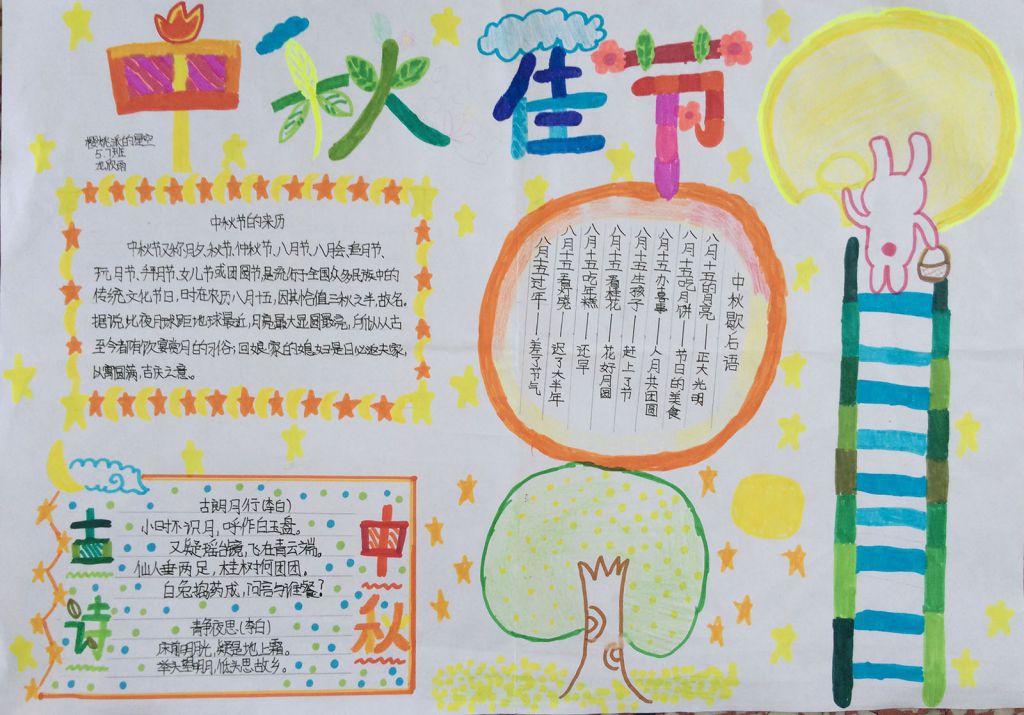 中秋佳节
樱桃冰的星空
5.7班
中秋节的来历
中秋节又称月夕、秋节、仲秋节、八月节、八月会、追月节、
玩月节、拜月节、女儿节或团圆节,是流行于全国众多民族中的
传统文化节日,时在农历八月十五,因其恰值三秋之半,故名。
据说此夜月球距地球最近,月亮最大显圆最亮,所以从古
至今都有饮宴赏月的习俗;回娘家的媳妇是日必返夫家,
以寓圆满,吉庆之意。
中秋歇后语
八月十五的月亮——正大光明
八月十五吃月饼——节日的美食
八月十五办喜事——人月共团圆
八月十五生孩子——赶上了节
八月十五看桂花——花好月圆
八月十五吃年糕——还早
八月十五看灯笼——迟了大半年
八月十五过年——差了节气
古诗
中秋
古朗月行(李白)
小时不识月,呼作白玉盘。
又疑瑶台镜,飞在青云端。
仙人垂两足,桂树何团团。
白兔捣药成,问言与谁餐?
静夜思(李白)
床前明月光,疑是地上霜。
举头望明月,低头思故乡。